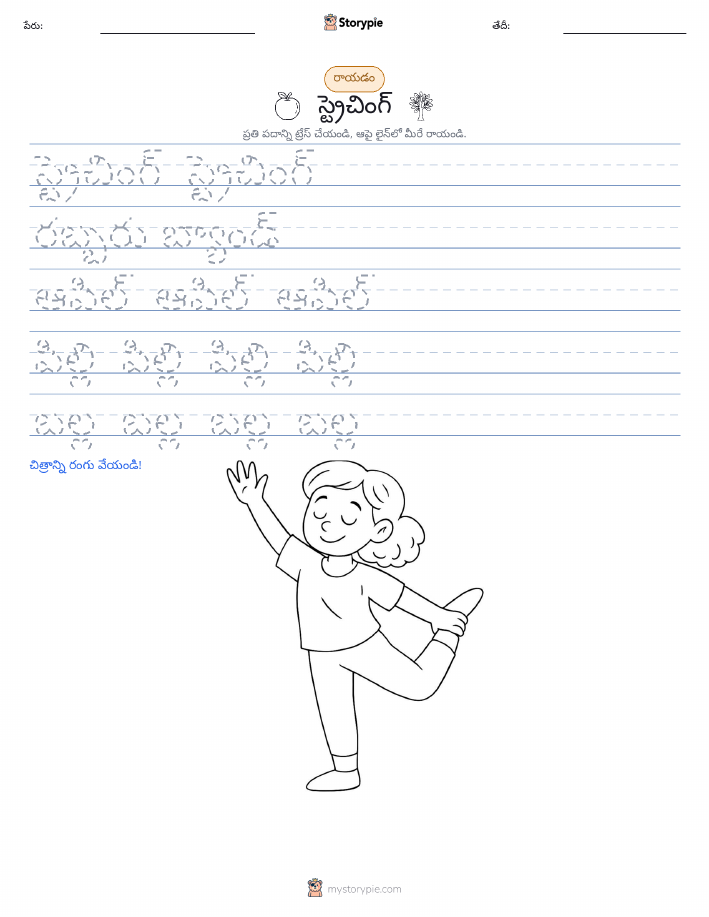 పేరు:
Storypie
తేదీ:
రాయడం
స్ట్రెచింగ్
ప్రతి పదాన్ని ట్రేస్ చేయండి, ఆపై లైన్‌లో మీరే రాయండి.
స్ట్రెచింగ్ స్ట్రెచింగ్
రబ్బారు బ్యాండ్
ఆపిల్ ఆపిల్ ఆపిల్
పిల్లి పిల్లి పిల్లి పిల్లి
బల్ల బల్ల బల్ల బల్ల
చిత్రాన్ని రంగు వేయండి!
mystorypie.com